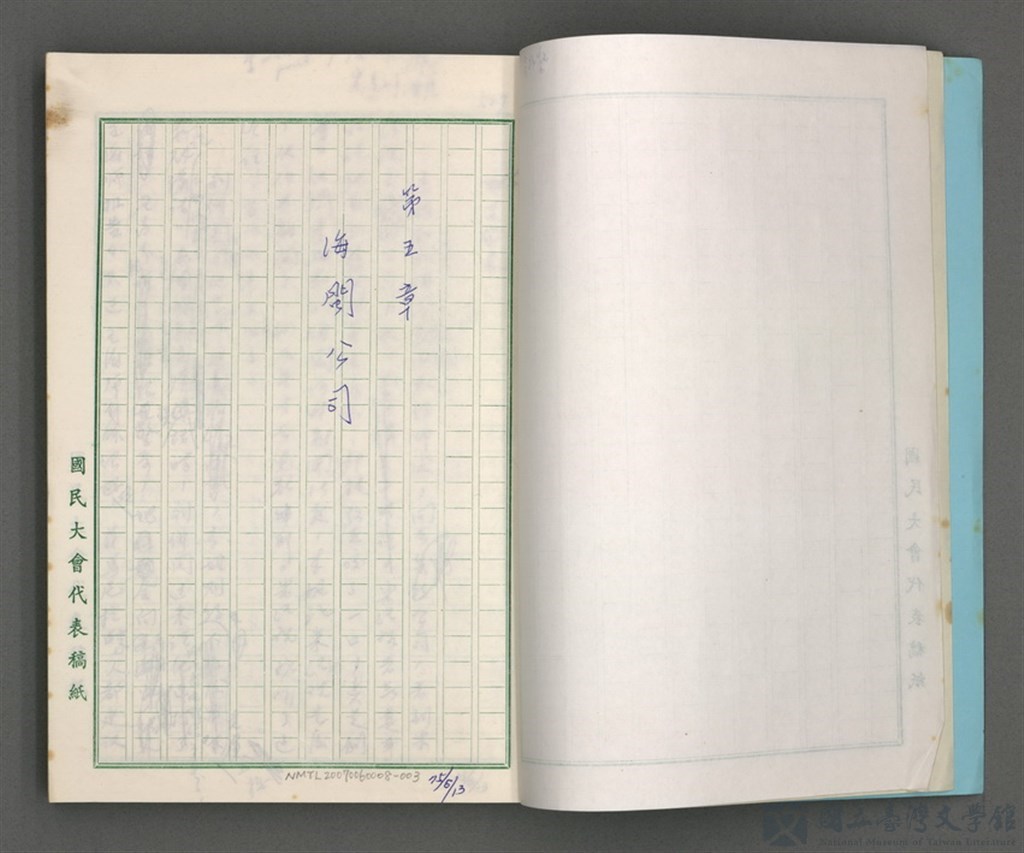 第五章
海閣公司
國民大會代表稿紙
NMTL20070060008-003
75/5/13
國立臺灣文學館
National Museum of Taiwan Literature